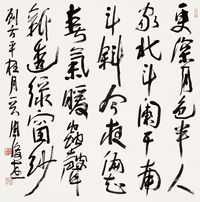 更深月色半人
家北斗闌干南
斗斜今夜偏知
春氣暖蟲聲
新透綠窗紗
劉方平夜月